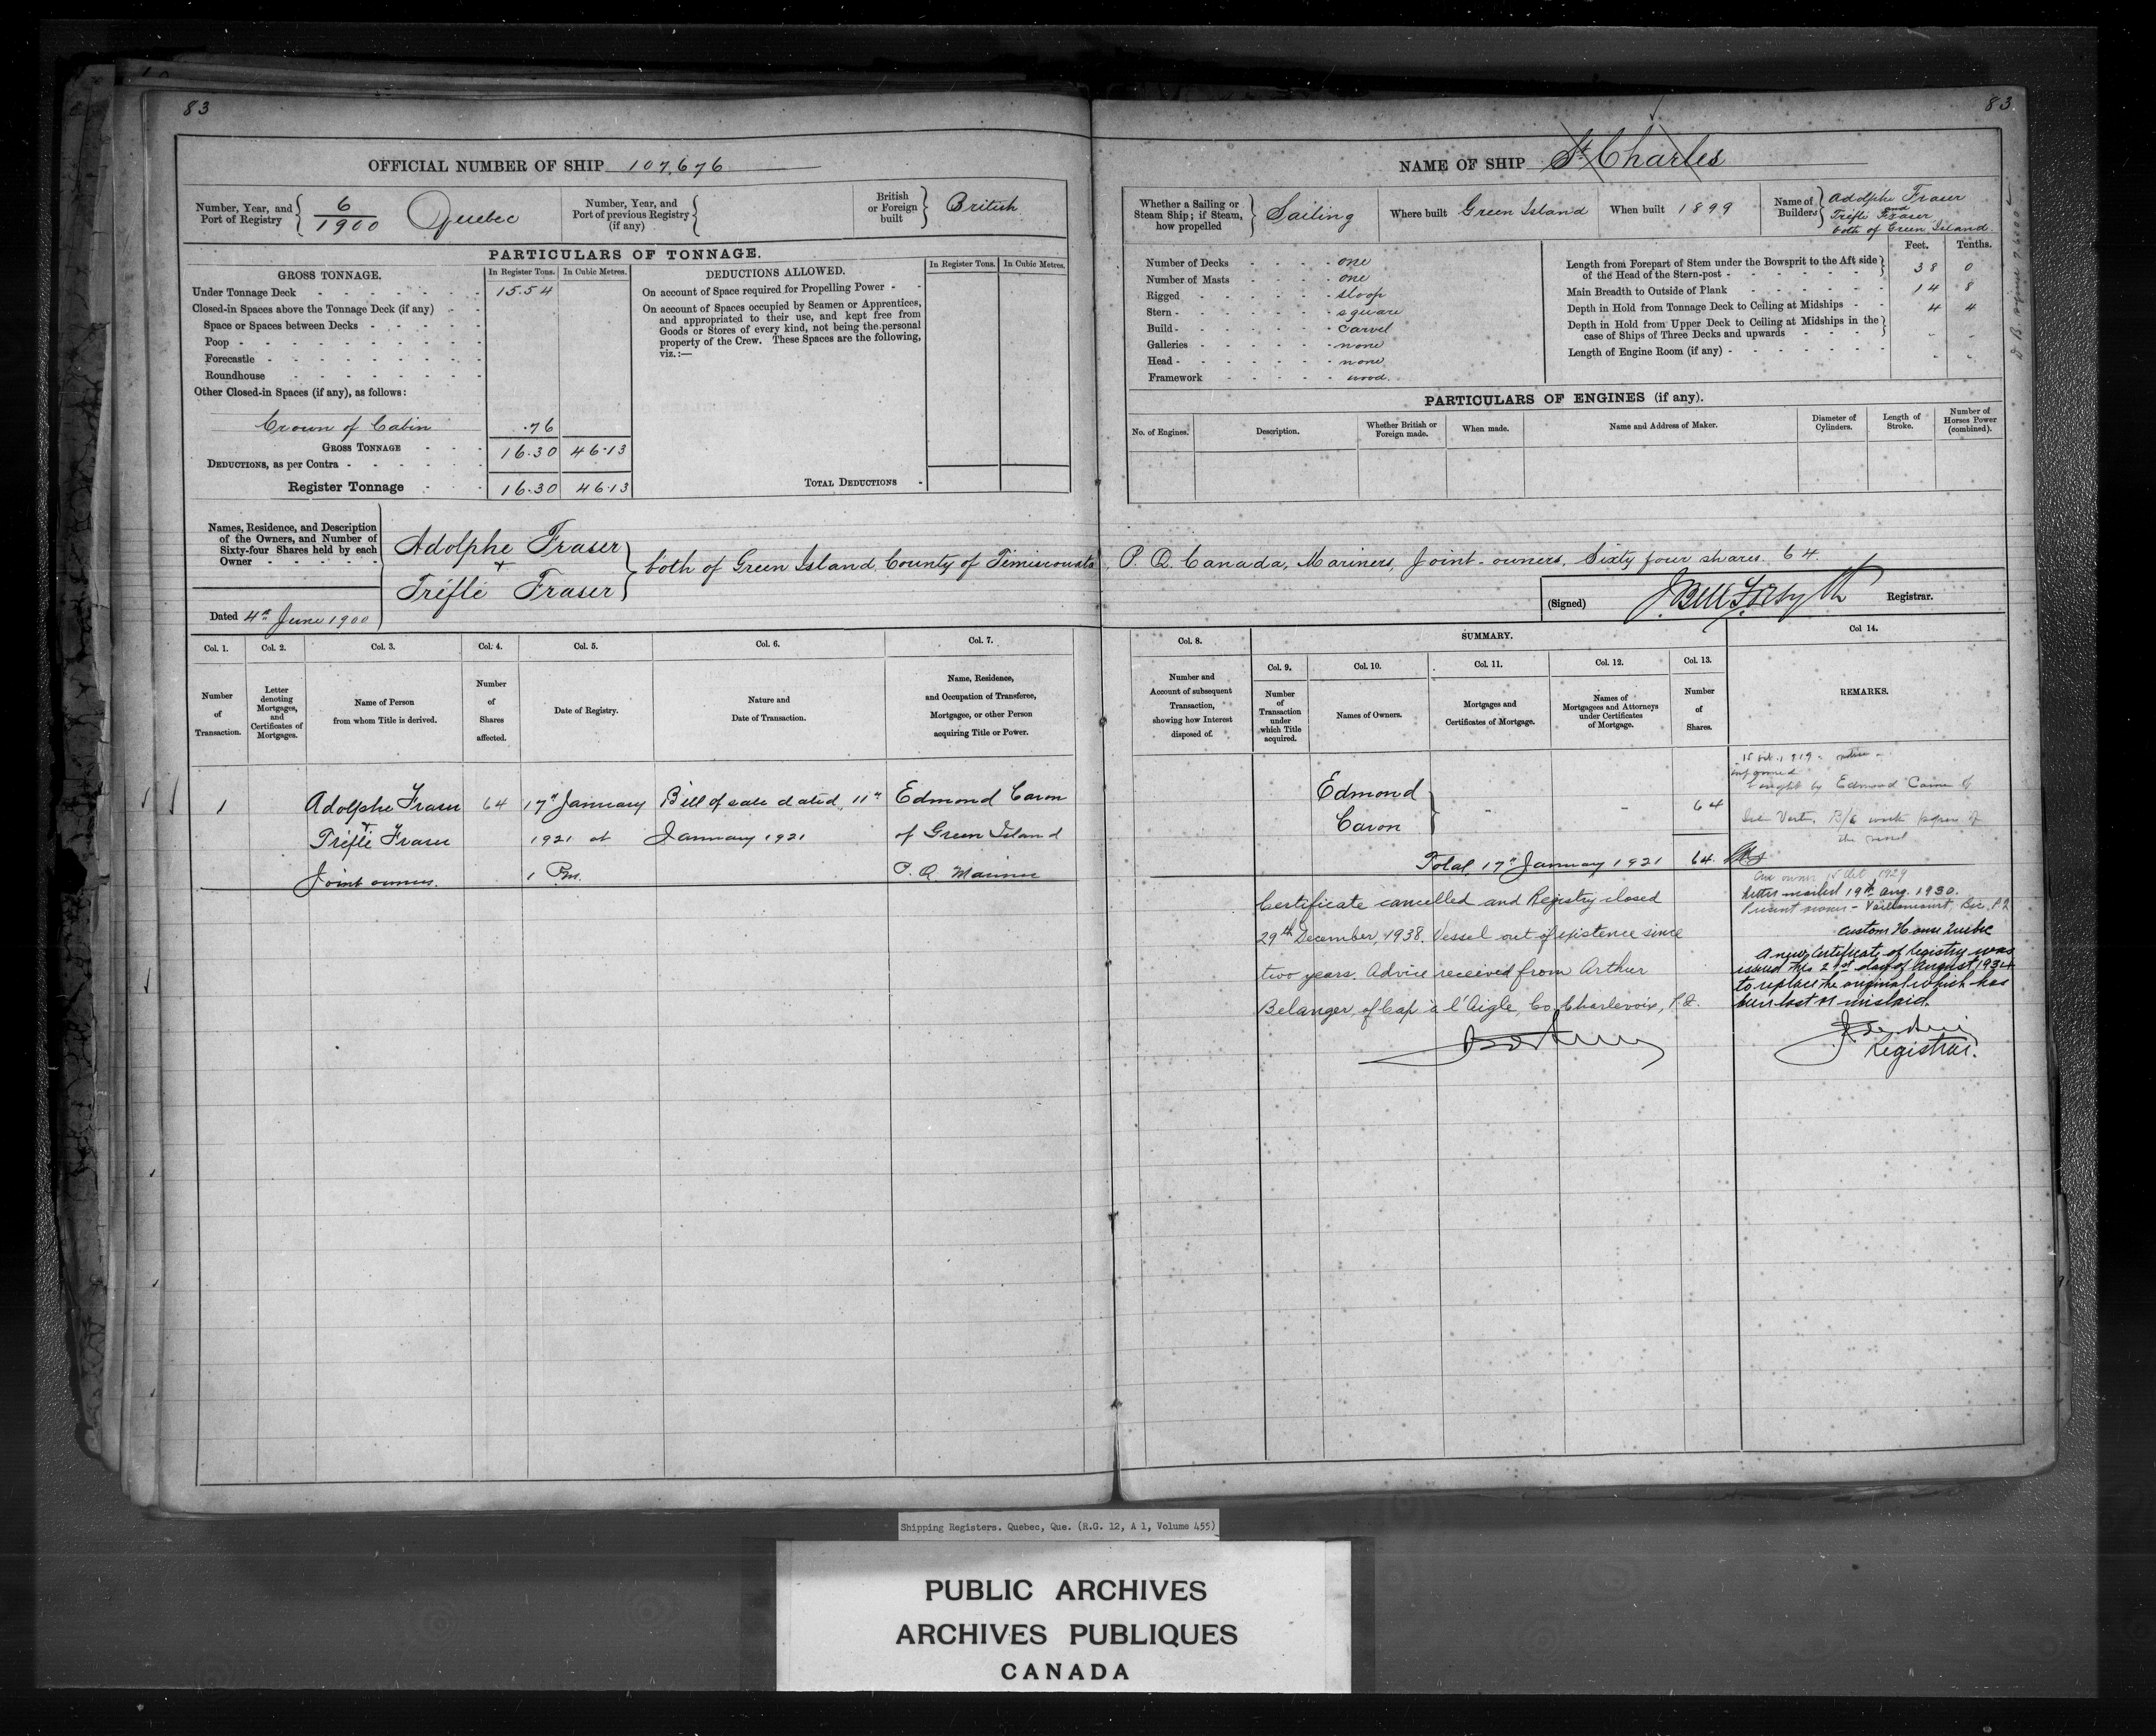 83
OFFICIAL NUMBER OF SHIP 107,676
Number, Year, and Port of Registry 6/1900 Quebec
Number, Year, and Port of previous Registry (if any)
British or Foreign built British
PARTICULARS OF TONNAGE.
GROSS TONNAGE. In Register Tons. In Cubic Metres.
Under Tonnage Deck 15.54
Closed-in Spaces above the Tonnage Deck (if any)
Space or Spaces between Decks
Poop
Forecastle
Roundhouse
Other Closed-in Spaces (if any), as follows:
Crown of Cabin .76
GROSS TONNAGE 16.30 46.13
DEDUCTIONS, as per Contra
Register Tonnage 16.30 46.13
DEDUCTIONS ALLOWED. In Register Tons. In Cubic Metres.
On account of Space required for Propelling Power
On account of Spaces occupied by Seamen or Apprentices,
and appropriated to their use, and kept free from
Goods or Stores of every kind, not being the personal
property of the Crew. These Spaces are the following,
viz.:—
TOTAL DEDUCTIONS
83
NAME OF SHIP St Charles
Whether a Sailing or Steam Ship; if Steam, how propelled Sailing
Where built Green Island
When built 1899
Name of Builders Adolphe Fraser
and
Tréflé Fraser
both of Green Island.
Number of Decks one
Number of Masts one
Rigged sloop
Stern square
Build carvel
Galleries none
Head none
Framework wood.
Feet. Tenths.
Length from Forepart of Stem under the Bowsprit to the Aft side
of the Head of the Stern-post 38 0
Main Breadth to Outside of Plank 14 8
Depth in Hold from Tonnage Deck to Ceiling at Midships 4 4
Depth in Hold from Upper Deck to Ceiling at Midships in the
case of Ships of Three Decks and upwards
Length of Engine Room (if any)
PARTICULARS OF ENGINES (if any).
No. of Engines. Description. Whether British or Foreign made. When made. Name and Address of Maker. Diameter of Cylinders. Length of Stroke. Number of Horses Power (combined).
Names, Residence, and Description
of the Owners, and Number of
Sixty-four Shares held by each
Owner
Adolphe Fraser
+
Tréflé Fraser
both of Green Island, County of Temiscouata P. Q. Canada, Mariners, Joint-owners, Sixty four shares 64.
Dated 4th June 1900
(Signed) J Bell Forsyth Registrar.
Col. 1. Col. 2. Col. 3. Col. 4. Col. 5. Col. 6. Col. 7.
Number of Transaction.
Letter denoting Mortgages, and Certificates of Mortgages.
Name of Person from whom Title is derived.
Number of Shares affected.
Date of Registry.
Nature and Date of Transaction.
Name, Residence, and Occupation of Transferee, Mortgagee, or other Person acquiring Title or Power.
1 Adolphe Fraser 64 17th January Bill of sale dated 11th Edmond Caron
+ Tréflé Fraser 1921 at January 1921 of Green Island
Joint owners. 1 P.m. P. Q. Mariner
Col. 8. SUMMARY. Col. 14.
Col. 9. Col. 10. Col. 11. Col. 12. Col. 13.
Number and Account of subsequent Transaction, showing how Interest disposed of.
Number of Transaction under which Title acquired.
Names of Owners.
Mortgages and Certificates of Mortgage.
Names of Mortgagees and Attorneys under Certificates of Mortgage.
Number of Shares.
REMARKS.
Edmond
Caron 64
Total 17th January 1921 64.
Certificate cancelled and Registry closed
29th December, 1938. Vessel out of existence since
two years. Advice received from Arthur
Belanger, of Cap à l'Aigle, Co. Charlevoix, P.Q.
bought by Edmond Caron of
Isle Verte.
the vessel
1929
Letter mailed 19th Aug. 1930.
Custom House Quebec
A new Certificate of Registry was
issued this 21st day of August 1934
to replace the original which has
been lost or mislaid.
Registrar.
Shipping Registers. Quebec, Que. (R.G. 12, A 1, Volume 455)
PUBLIC ARCHIVES
ARCHIVES PUBLIQUES
CANADA